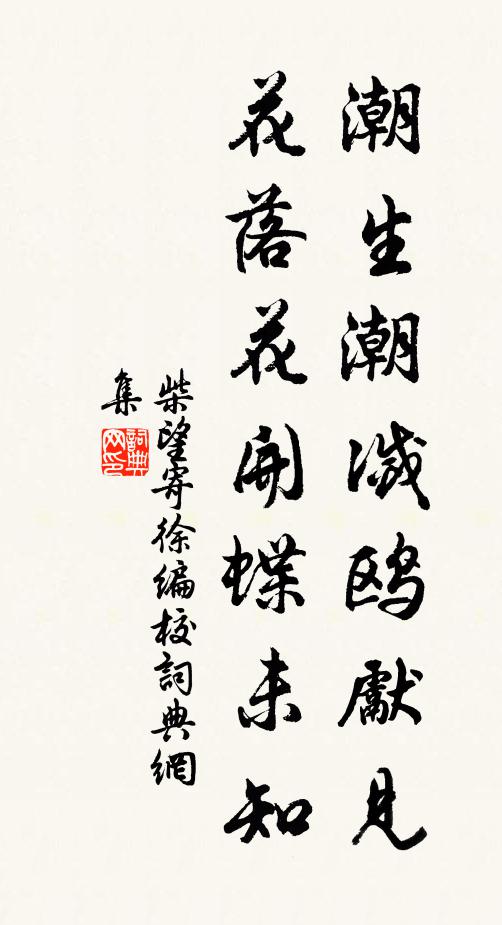 潮生潮滅鷗厭見
花落花開蝶未知
柴望寄徐編校詞典網
集
詞典網印